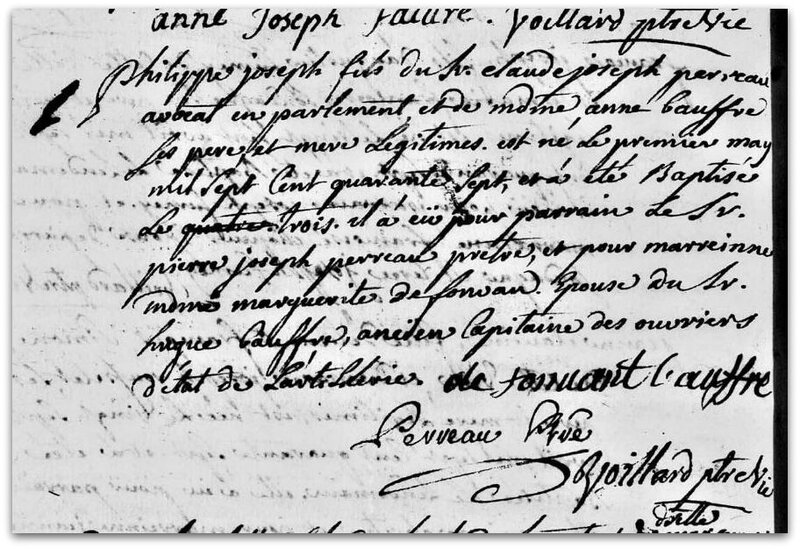 anne Joseph fature. Voillard ptre Vic
Philippe joseph fils du Sr. claude joseph perreau
avocat en parlement, et de mdme, anne bauffre
ses pere et mere legitimes. est ne Le premier may
mil sept Cent quarante sept, et à eté Baptisé
Le quatre trois. il à eü pour parrain Le Sr.
pierre joseph perreau prêtre, et pour marreinne
mdme marguerite de Epouse du Sr.
hugue bauffre, ancien Capitaine des ouvriers
d'etat de L'artillerie. de l'auffre
Perreau Ptre
Voillard ptre Vic